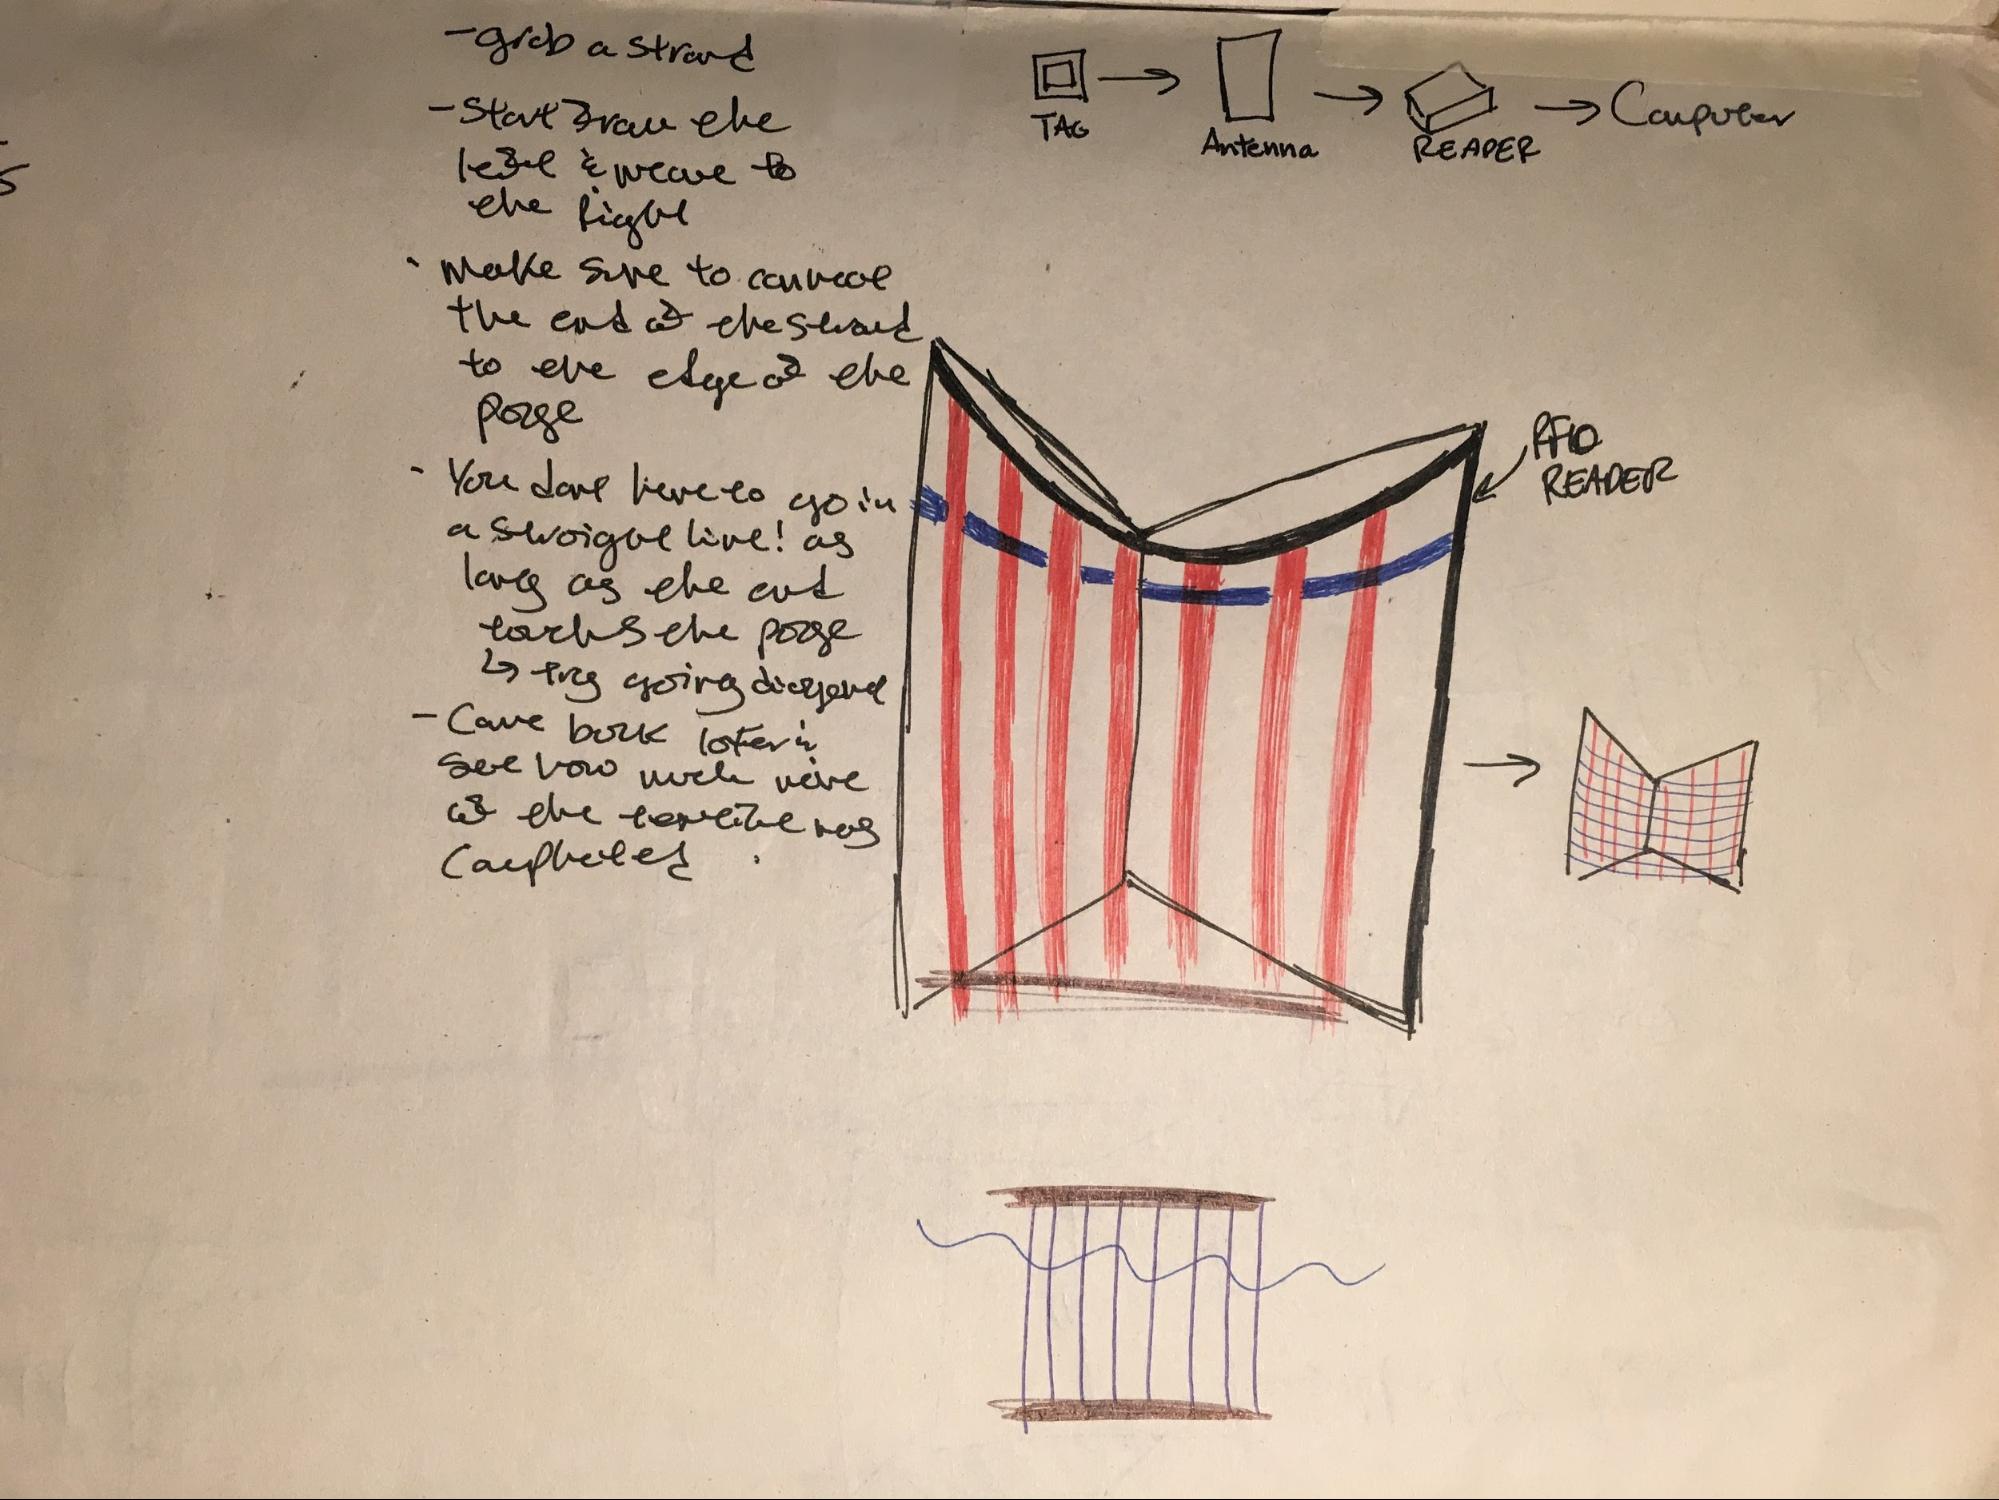 - grab a strand
- Start from the
left & weave to
the Right
· Make sure to connect
the end of the strand
to the edge of the
· You dont have to go in
a straight line! as
long as the end
the
↳ try going diagonal
- Come back later &
see how much more
of the textile was
Completed
TAG → Antenna → READER → Computer
RFID
READER